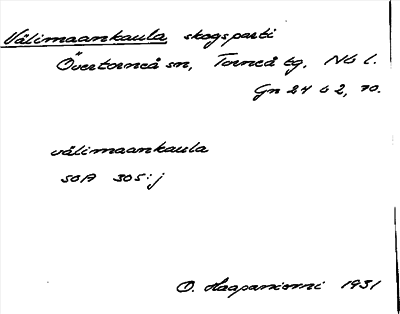 Välimaankaula skogsparti
Övertorneå sn, Torneå tg, Nb l.
Gn 24 b 2, no.
välimaankaula
SOA 305:j
O. Haapaniemi 1931